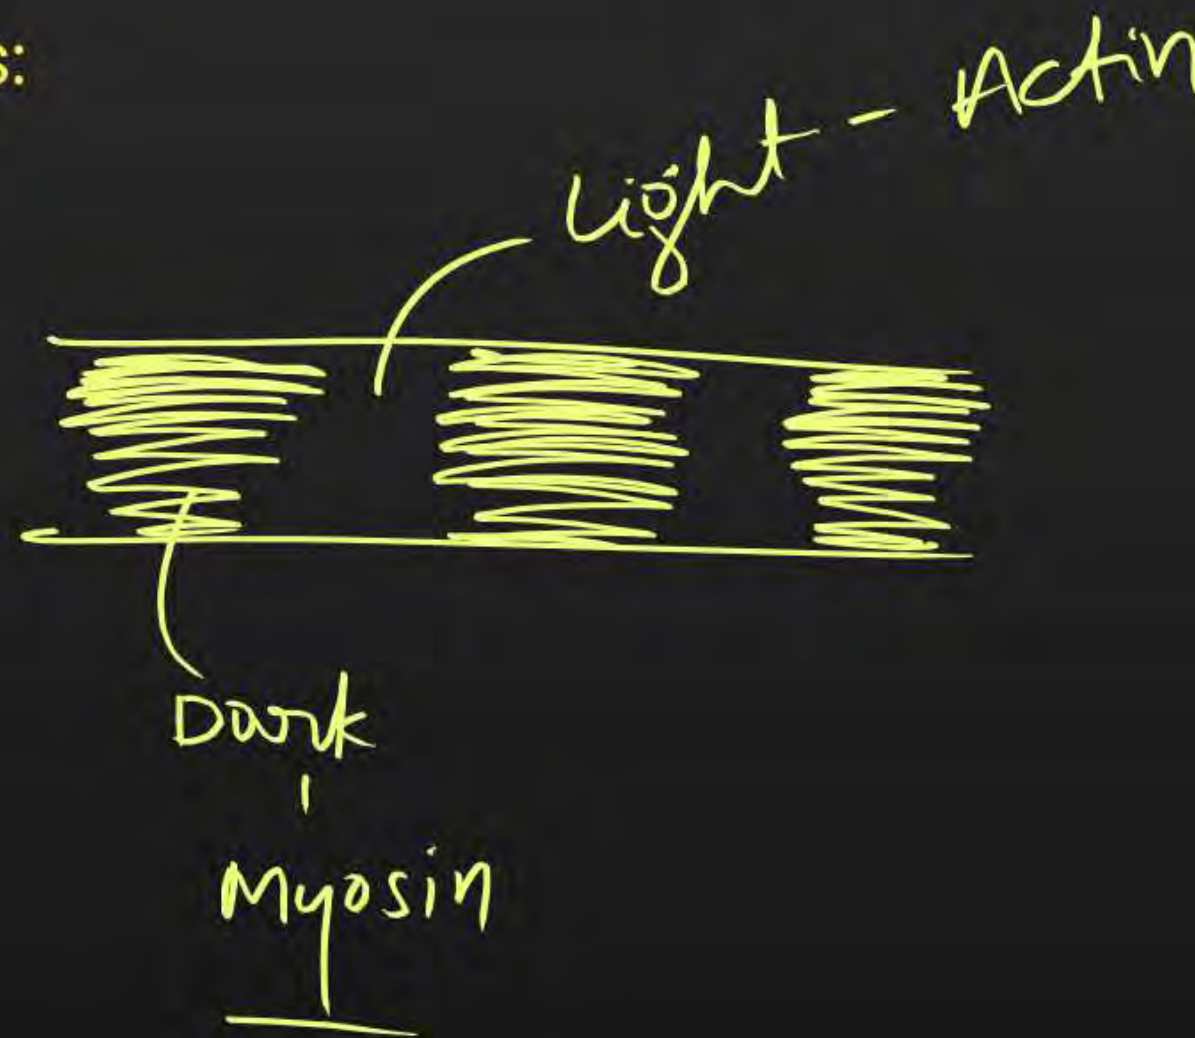 s:
Light - Actin
Dark
Myosin